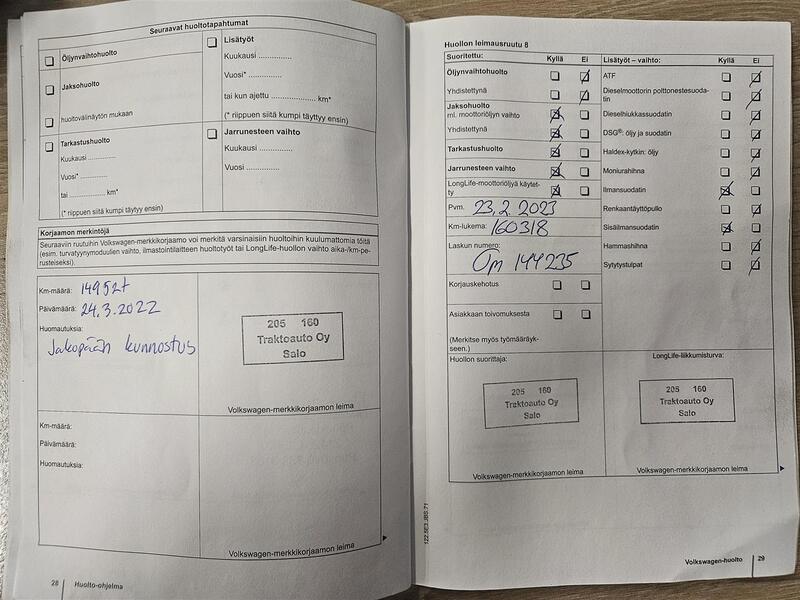 Seuraavat huoltotapahtumat
Öljynvaihtohuolto
Jaksohuolto
huoltovälinäytön mukaan
Tarkastushuolto
Kuukausi ..............
Vuosi* ..............
tai .................. km*
(* riippuen siitä kumpi täyttyy ensin)
Lisätyöt
Kuukausi ..............
Vuosi* ..............
tai kun ajettu .................. km*
(* riippuen siitä kumpi täyttyy ensin)
Jarrunesteen vaihto
Kuukausi ..............
Vuosi ..............
Korjaamon merkintöjä
Seuraaviin ruutuihin Volkswagen-merkkikorjaamo voi merkitä varsinaisiin huoltoihin kuulumattomia töitä
(esim. turvatyynymoduulien vaihto, ilmastointilaitteen huoltotyöt tai LongLife-huollon vaihto aika-/km-pe-
rusteiseksi).
Km-määrä: 149527
Päivämäärä: 24.3.2022
Huomautuksia:
Jakopään kunnostus
205 160
Traktoauto Oy
Salo
Volkswagen-merkkikorjaamon leima
Km-määrä:
Päivämäärä:
Huomautuksia:
Volkswagen-merkkikorjaamon leima
28 Huolto-ohjelma
Huollon leimausruutu 8
Suoritettu: Kyllä Ei
Öljynvaihtohuolto
Yhdistettynä
Jaksohuolto
ml. moottoriöljyn vaihto
Yhdistettynä
Tarkastushuolto
Jarrunesteen vaihto
LongLife-moottoriöljyä käytet-
ty
Pvm. 23.2.2023
Km-lukema: 160318
Laskun numero:
Om 144235
Korjauskehotus
Asiakkaan toivomuksesta
(Merkitse myös työmääräyk-
seen.)
Lisätyöt – vaihto: Kyllä Ei
ATF
Dieselmoottorin polttonestesuoda-
tin
Dieselhiukkassuodatin
DSG®: öljy ja suodatin
Haldex-kytkin: öljy
Moniurahihna
Ilmansuodatin
Renkaantäyttöpullo
Sisäilmansuodatin
Hammashihna
Sytytystulpat
Huollon suorittaja:
205 160
Traktoauto Oy
Salo
Volkswagen-merkkikorjaamon leima
LongLife-liikkumisturva:
205 160
Traktoauto Oy
Salo
Volkswagen-merkkikorjaamon leima
122.5E3.IBS.71
Volkswagen-huolto 29